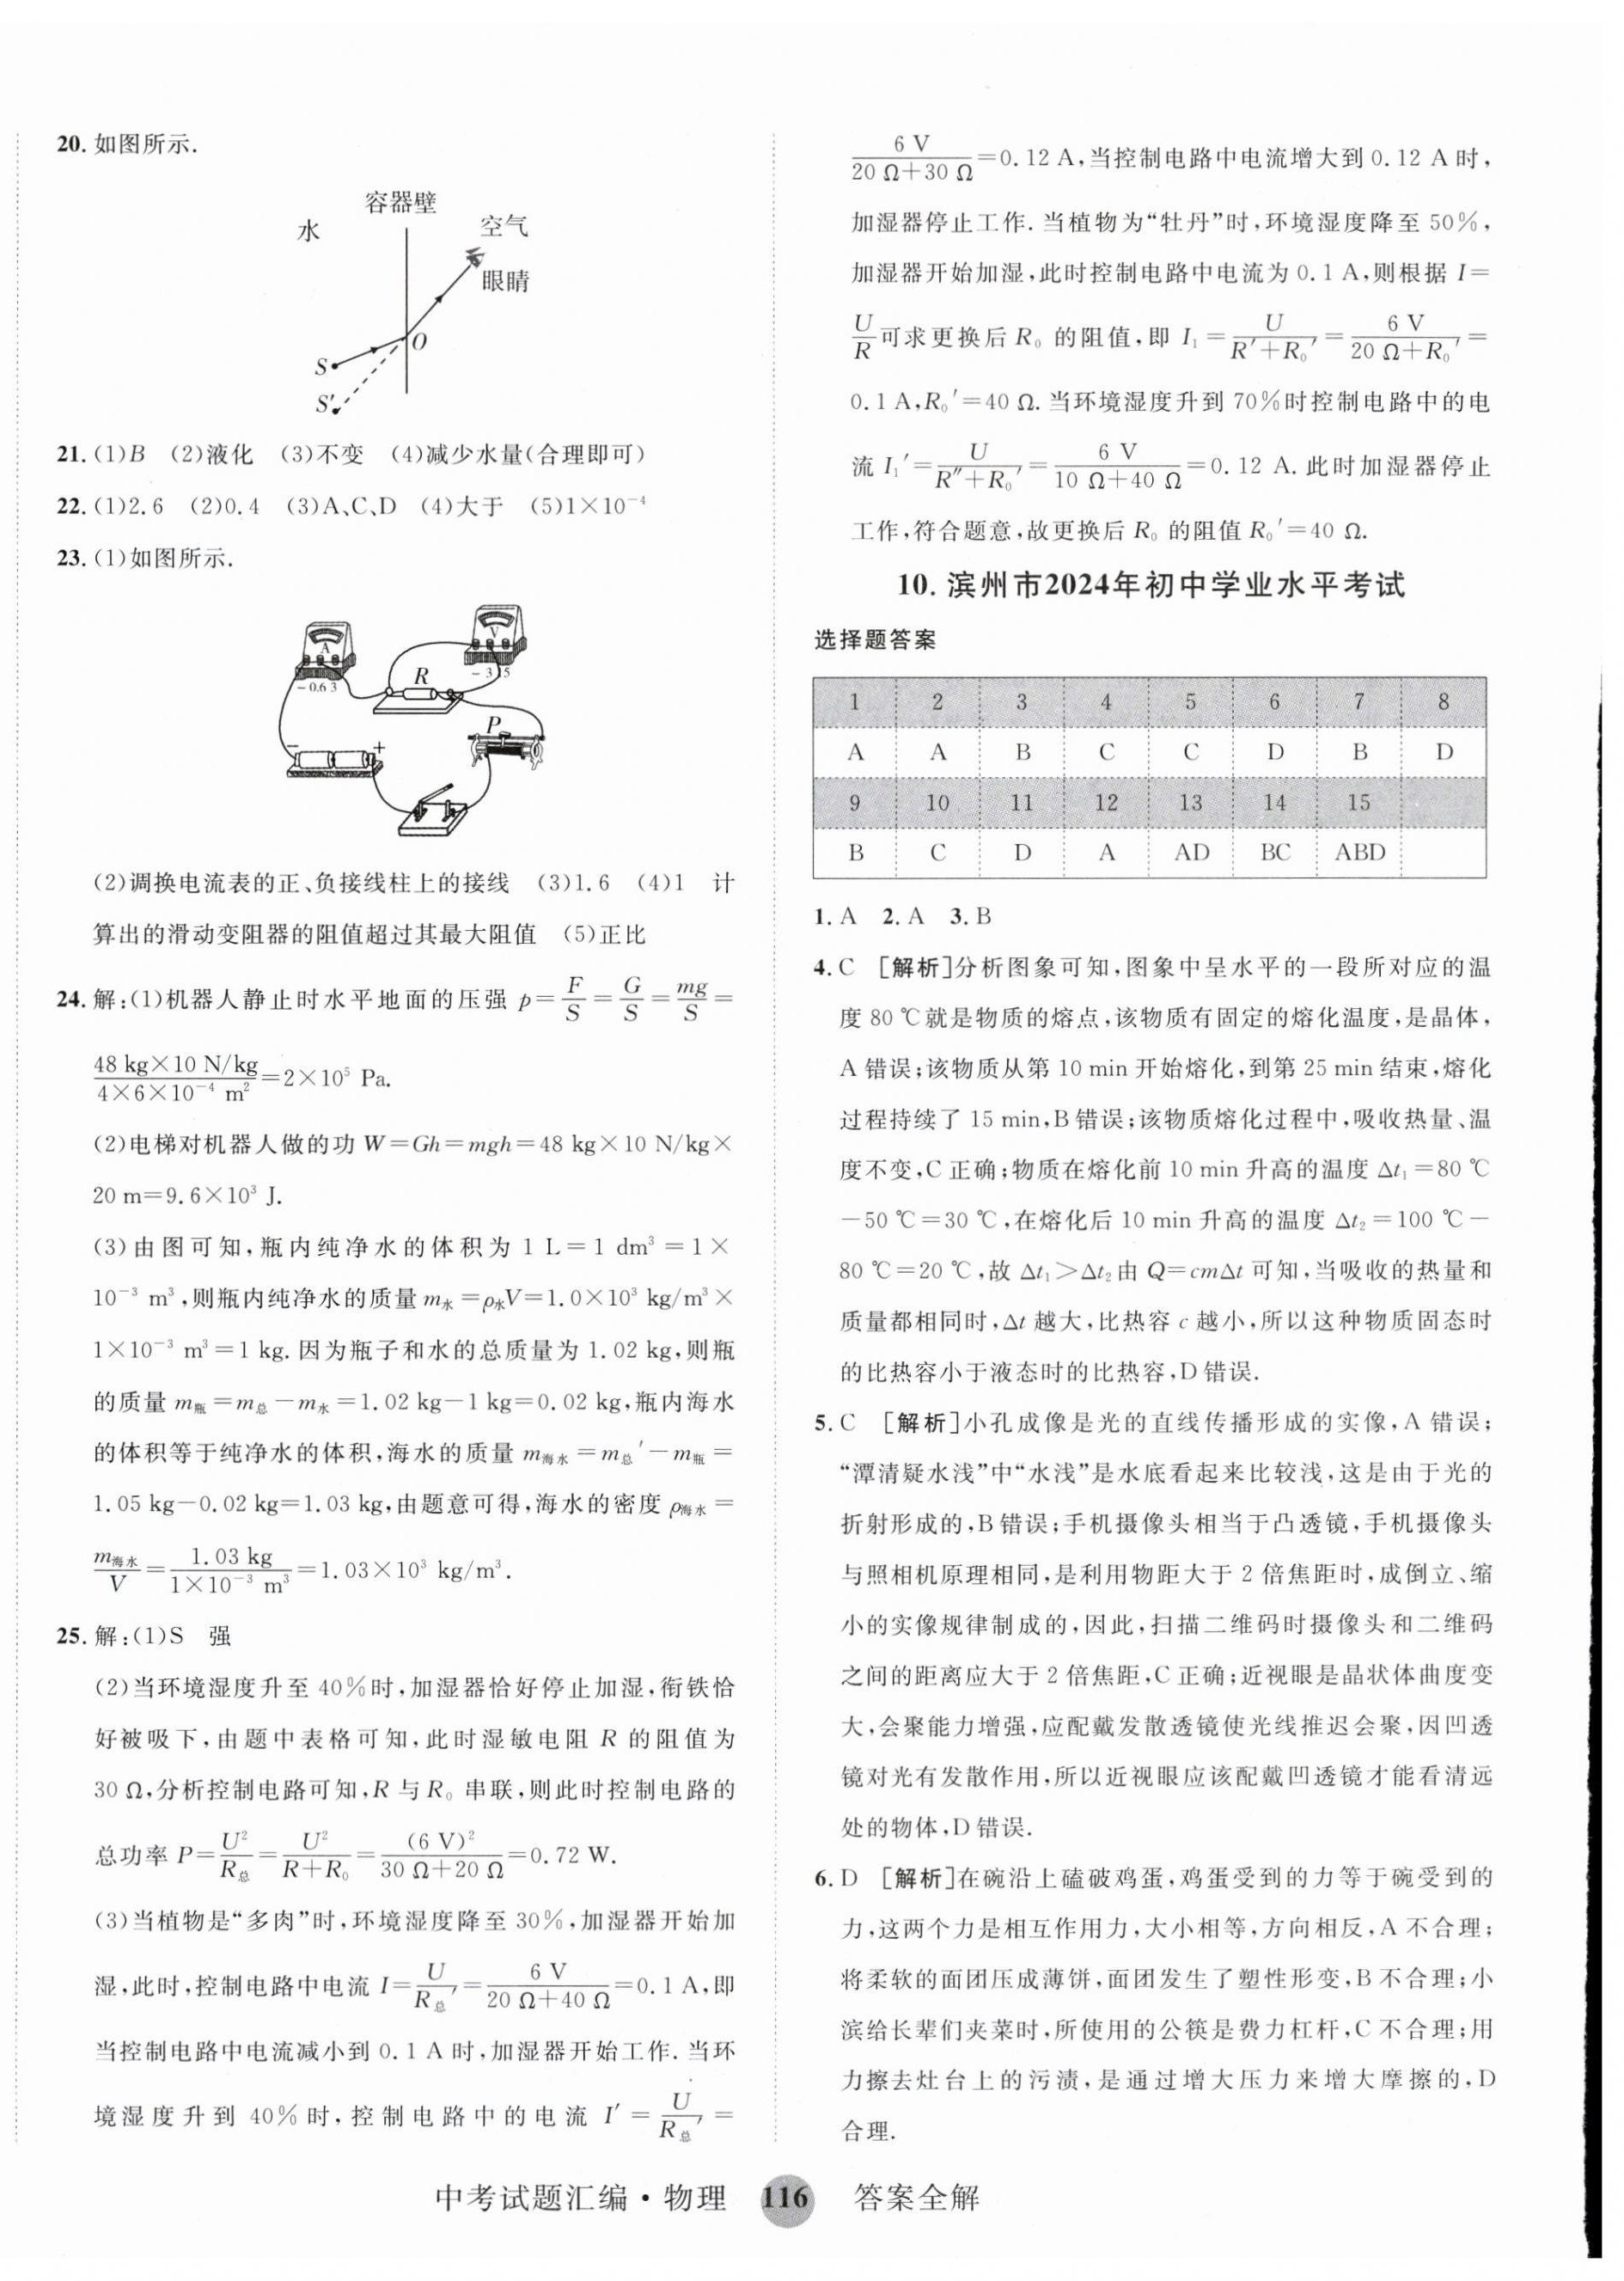 20. 如图所示.
容器壁
水
空气
眼睛
O
S
S′
21. (1)B (2)液化 (3)不变 (4)减少水量(合理即可)
22. (1)2.6 (2)0.4 (3)A、C、D (4)大于 (5)1×10⁻⁴
23. (1)如图所示.
A
V
R
- 0.6 3
- 3 15
P
−
+
(2)调换电流表的正、负接线柱上的接线 (3)1.6 (4)1 计
算出的滑动变阻器的阻值超过其最大阻值 (5)正比
24. 解:(1)机器人静止时水平地面的压强 p=F/S=G/S=mg/S=
48 kg×10 N/kg/4×6×10⁻⁴ m²=2×10⁵ Pa.
(2)电梯对机器人做的功 W=Gh=mgh=48 kg×10 N/kg×
20 m=9.6×10³ J.
(3)由图可知,瓶内纯净水的体积为 1 L=1 dm³=1×
10⁻³ m³,则瓶内纯净水的质量 m水=ρ水V=1.0×10³ kg/m³×
1×10⁻³ m³=1 kg.因为瓶子和水的总质量为 1.02 kg,则瓶
的质量 m瓶=m总-m水=1.02 kg-1 kg=0.02 kg,瓶内海水
的体积等于纯净水的体积,海水的质量 m海水=m总′-m瓶=
1.05 kg-0.02 kg=1.03 kg,由题意可得,海水的密度 ρ海水=
m海水/V=1.03 kg/1×10⁻³ m³=1.03×10³ kg/m³.
25. 解:(1)S 强
(2)当环境湿度升至 40%时,加湿器恰好停止加湿,衔铁恰
好被吸下,由题中表格可知,此时湿敏电阻 R 的阻值为
30 Ω,分析控制电路可知,R 与 R₀ 串联,则此时控制电路的
总功率 P=U²/R总=U²/R+R₀=(6 V)²/30 Ω+20 Ω=0.72 W.
(3)当植物是“多肉”时,环境湿度降至 30%,加湿器开始加
湿,此时,控制电路中电流 I=U/R总′=6 V/20 Ω+40 Ω=0.1 A,即
当控制电路中电流减小到 0.1 A 时,加湿器开始工作.当环
境湿度升到 40%时,控制电路中的电流 I′=U/R总′=
6 V/20 Ω+30 Ω=0.12 A,当控制电路中电流增大到 0.12 A 时,
加湿器停止工作.当植物为“牡丹”时,环境湿度降至 50%,
加湿器开始加湿,此时控制电路中电流为 0.1 A,则根据 I=
U/R可求更换后 R₀ 的阻值,即 I₁=U/R′+R₀′=6 V/20 Ω+R₀′=
0.1 A,R₀′=40 Ω.当环境湿度升到 70%时控制电路中的电
流 I₁′=U/R″+R₀′=6 V/10 Ω+40 Ω=0.12 A.此时加湿器停止
工作,符合题意,故更换后 R₀ 的阻值 R₀′=40 Ω.
10. 滨州市2024年初中学业水平考试
选择题答案
1 2 3 4 5 6 7 8
A A B C C D B D
9 10 11 12 13 14 15
B C D A AD BC ABD
1. A 2. A 3. B
4. C [解析]分析图象可知,图象中呈水平的一段所对应的温
度 80 ℃就是物质的熔点,该物质有固定的熔化温度,是晶体,
A 错误;该物质从第 10 min 开始熔化,到第 25 min 结束,熔化
过程持续了 15 min,B 错误;该物质熔化过程中,吸收热量、温
度不变,C 正确;物质在熔化前 10 min 升高的温度 Δt₁=80 ℃
-50 ℃=30 ℃,在熔化后 10 min 升高的温度 Δt₂=100 ℃-
80 ℃=20 ℃,故 Δt₁>Δt₂由 Q=cmΔt 可知,当吸收的热量和
质量都相同时,Δt 越大,比热容 c 越小,所以这种物质固态时
的比热容小于液态时的比热容,D 错误.
5. C [解析]小孔成像是光的直线传播形成的实像,A 错误;
“潭清疑水浅”中“水浅”是水底看起来比较浅,这是由于光的
折射形成的,B 错误;手机摄像头相当于凸透镜,手机摄像头
与照相机原理相同,是利用物距大于 2 倍焦距时,成倒立、缩
小的实像规律制成的,因此,扫描二维码时摄像头和二维码
之间的距离应大于 2 倍焦距,C 正确;近视眼是晶状体曲度变
大,会聚能力增强,应配戴发散透镜使光线推迟会聚,因凹透
镜对光有发散作用,所以近视眼应该配戴凹透镜才能看清远
处的物体,D 错误.
6. D [解析]在碗沿上磕破鸡蛋,鸡蛋受到的力等于碗受到的
力,这两个力是相互作用力,大小相等,方向相反,A 不合理;
将柔软的面团压成薄饼,面团发生了塑性形变,B 不合理;小
滨给长辈们夹菜时,所使用的公筷是费力杠杆,C 不合理;用
力擦去灶台上的污渍,是通过增大压力来增大摩擦的,D
合理.
中考试题汇编·物理 116 答案全解